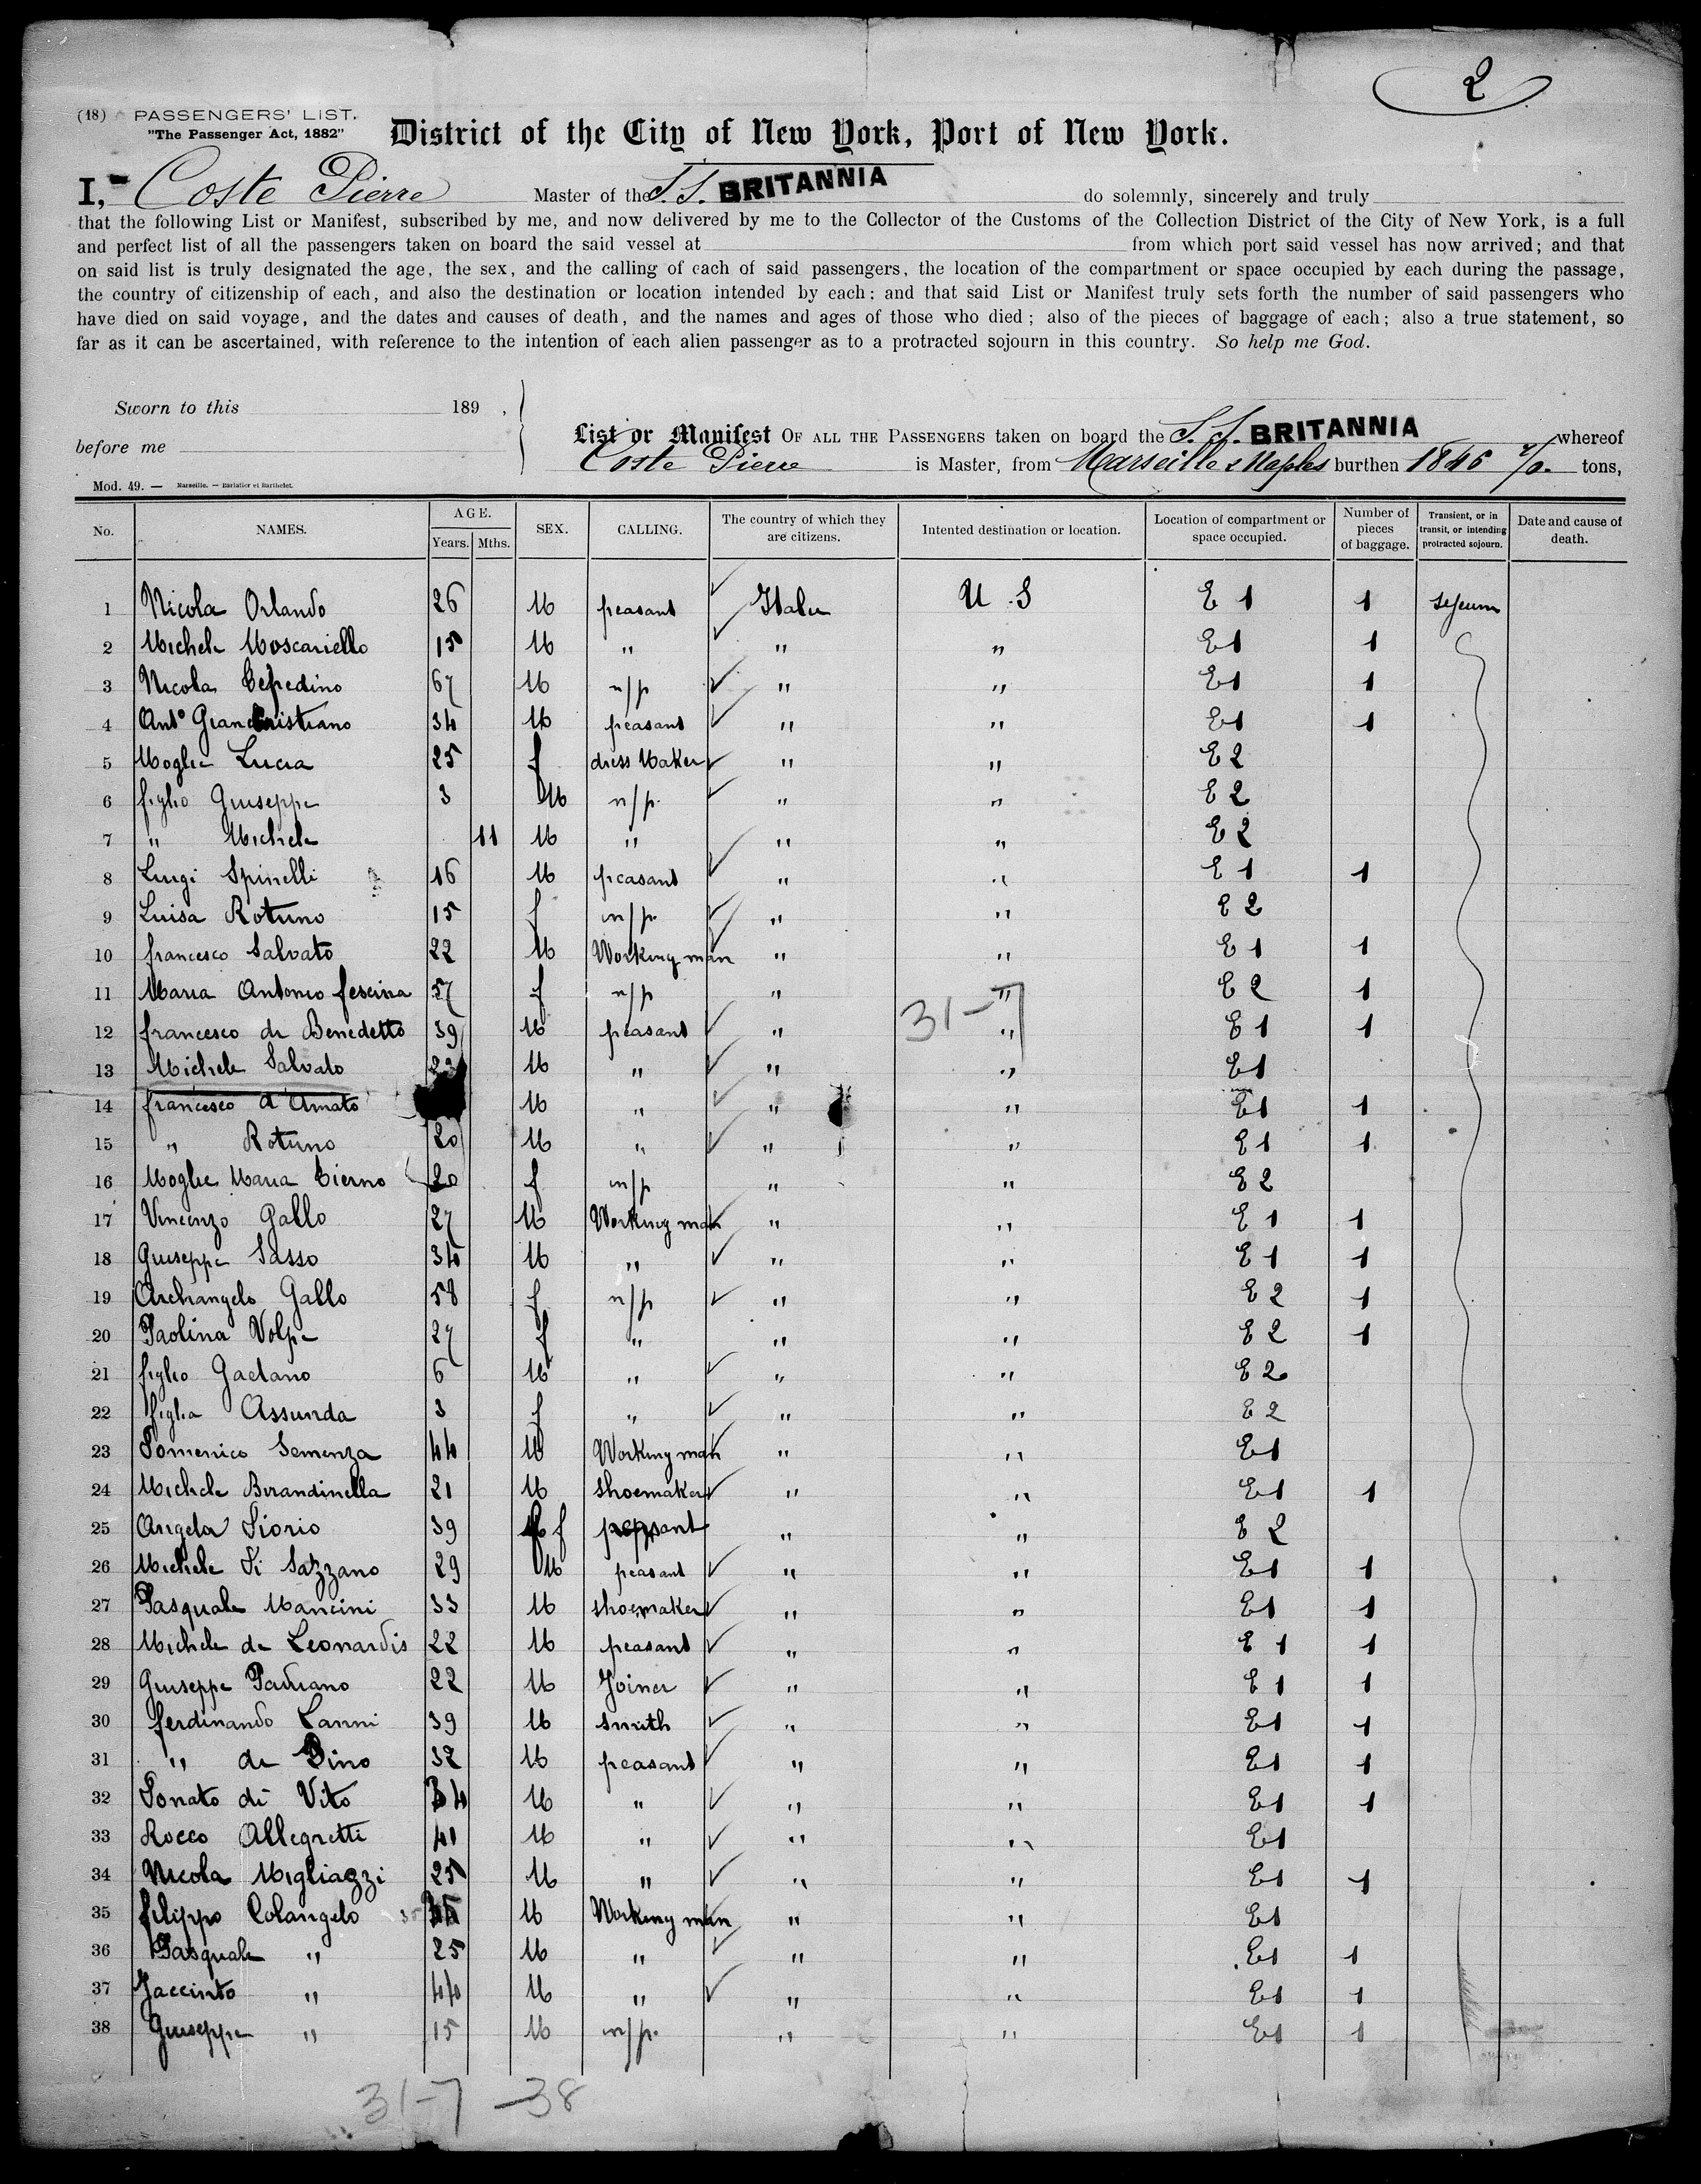 2
(18) PASSENGERS' LIST.
"The Passenger Act, 1882"
District of the City of New York, Port of New York.
I, Coste Pierre Master of the S.S. BRITANNIA do solemnly, sincerely and truly
that the following List or Manifest, subscribed by me, and now delivered by me to the Collector of the Customs of the Collection District of the City of New York, is a full
and perfect list of all the passengers taken on board the said vessel at from which port said vessel has now arrived; and that
on said list is truly designated the age, the sex, and the calling of each of said passengers, the location of the compartment or space occupied by each during the passage,
the country of citizenship of each, and also the destination or location intended by each: and that said List or Manifest truly sets forth the number of said passengers who
have died on said voyage, and the dates and causes of death, and the names and ages of those who died; also of the pieces of baggage of each; also a true statement, so
far as it can be ascertained, with reference to the intention of each alien passenger as to a protracted sojourn in this country. So help me God.
Sworn to this 189 ,
before me
List or Manifest OF ALL THE PASSENGERS taken on board the S.S. BRITANNIA whereof
Coste Pierre is Master, from Marseille & Naples burthen 1846 tons,
Mod. 49. — Marseille. — Barlatier et Barthelet.
No. NAMES. AGE. Years. Mths. SEX. CALLING. The country of which they are citizens. Intented destination or location. Location of compartment or space occupied. Number of pieces of baggage. Transient, or in transit, or intending protracted sojourn. Date and cause of death.
1 Nicola Orlando 26 M peasant U S E 1 1
2 Michele Moscariello 15 M " " " E1 1
3 Nicola 67 M n/p " " E1 1
4 Ant° Giancristiano 34 M peasant " " E1 1
5 Moglie Lucia 25 f dress Maker " " E 2
6 figlio Giuseppe 3 M n/p. " " E 2
7 " Michele 11 M " " " E 2
8 Luigi Spinelli 16 M peasant " " E 1 1
9 Luisa Rotuno 15 f n/p. " " E 2
10 francesco Salvato 22 M Working man " " E 1 1
11 Maria Antonio fescina 57 f n/p " " E 2 1
12 francesco de Benedetto 39 M peasant " 31-7 " E 1 1
13 Michele Salvato M " " " E1
14 francesco d'Amato M " " " E1 1
15 " Rotuno 20 M " " " E 1 1
16 Moglie Maria Cierno 20 f n/p " " E 2
17 Vincenzo Gallo 27 M Working man " " E 1 1
18 Giuseppe Sasso 34 M " " " E 1 1
19 Archangelo Gallo 58 f n/p " " E 2 1
20 Paolina Volpe 27 f " " " E 2 1
21 figlio Gaetano 6 M " " " E 2
22 figlia Assunda 3 f " " " E 2
23 Domenico Semenza 44 M Working man " " E1
24 Michele Birandinella 21 M shoemaker " " E1 1
25 Angela Diorio 39 f peasant " " E 2
26 Michele Di Sazzano 29 M peasant " " E1 1
27 Pasquale Mancini 33 M shoemaker " " E1 1
28 Michele de Leonardis 22 M peasant " " E 1 1
29 Giuseppe Paduano 22 M Joiner " " E 1 1
30 ferdinando Lanni 39 M smith " " E1 1
31 " de Dino 32 M peasant " " E1 1
32 Donato di Vito 34 M " " " E1 1
33 Rocco Allegretti 41 M " " " E1
34 Nicola Migliazzi 25 M " " " E1 1
35 filippo Colangelo M Working man " " E1
36 Pasquale " 25 M " " " E1 1
37 Jaccinto " 44 M " " " E1 1
38 Giuseppe " 15 M n/p. " " E1 1
31-7 -38